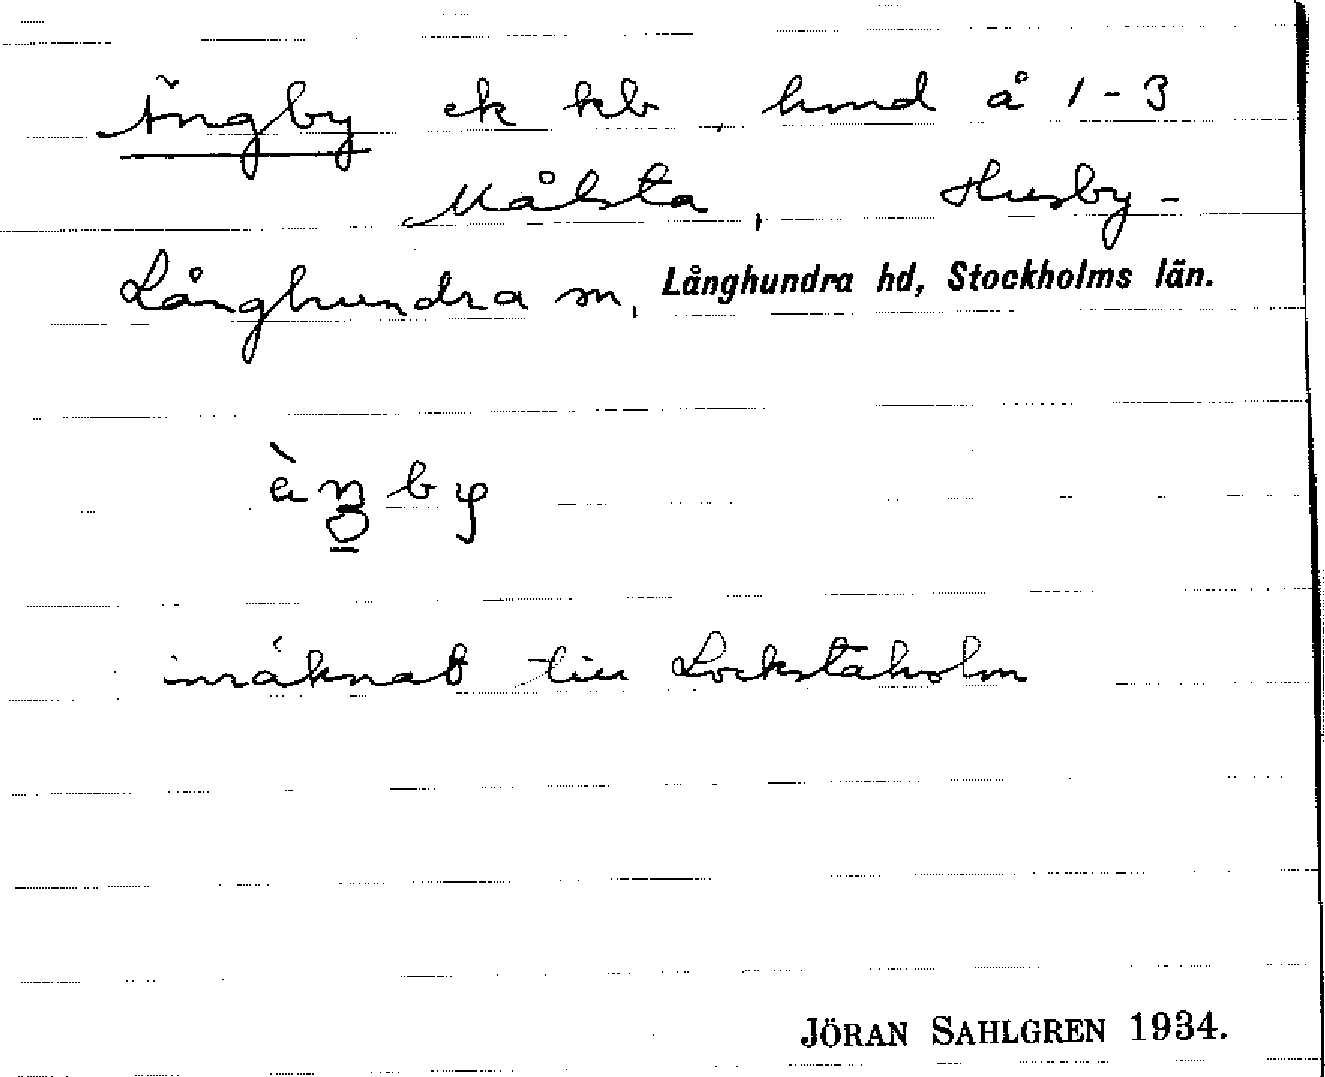 Ängby ek kb, hmd å 1-3
Målsta, Husby-
Långhundra sn, Långhundra hd, Stockholms län.
inräknat till Lockstaholm
JÖRAN SAHLGREN 1934.